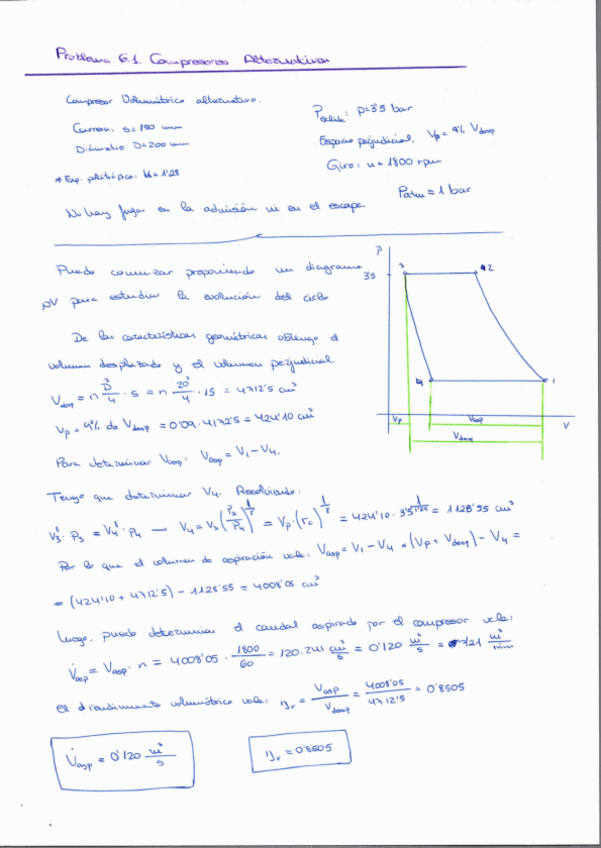 Problema 6.1. Compresores Alternativos
Compresor Volumétrico alternativo.
Carrera: s=150 mm
Diámetro: D=200 mm
* Exp. politrópico: k=1'28
No hay fugas en la admisión ni en el escape.
Psalida: p=3'5 bar
Espacio perjudicial, Vp=9% Vdesp
Giro: n=1800 rpm
Patm=1 bar
Puedo comenzar proponiendo un diagrama
pV para estudiar la evolución del ciclo
De las características geométricas obtengo el
volumen desplazado y el volumen perjudicial
Vdesp = π D²/4 · s = π 20²/4 · 15 = 4712'5 cm³
Vp = 9% de Vdesp = 0'09 · 4712'5 = 424'10 cm³
Para determinar Vasp: Vasp = V1 - V4.
P
35
3
2
4
1
Vp
Vasp
Vdesp
V
Tengo que determinar V4. Resolviendo:
V3^γ · P3 = V4^γ · P4 → V4 = V3 (P3/P4)^1/γ = Vp · (rc)^1/γ = 424'10 · 3'5^1/1'28 = 1128'55 cm³
Por lo que el volumen de aspiración vale: Vasp = V1 - V4 = (Vp + Vdesp) - V4 =
= (424'10 + 4712'5) - 1128'55 = 4008'05 cm³
Luego, puedo determinar el caudal aspirado por el compresor vale:
V̇asp = Vasp · n = 4008'05 · 1800/60 = 120.241 cm³/s = 0'120 m³/s = 7'21 m³/min
El rendimiento volumétrico vale: ηv = Vasp/Vdesp = 4008'05/4712'5 = 0'8505
V̇asp = 0'120 m³/s
ηv = 0'8505